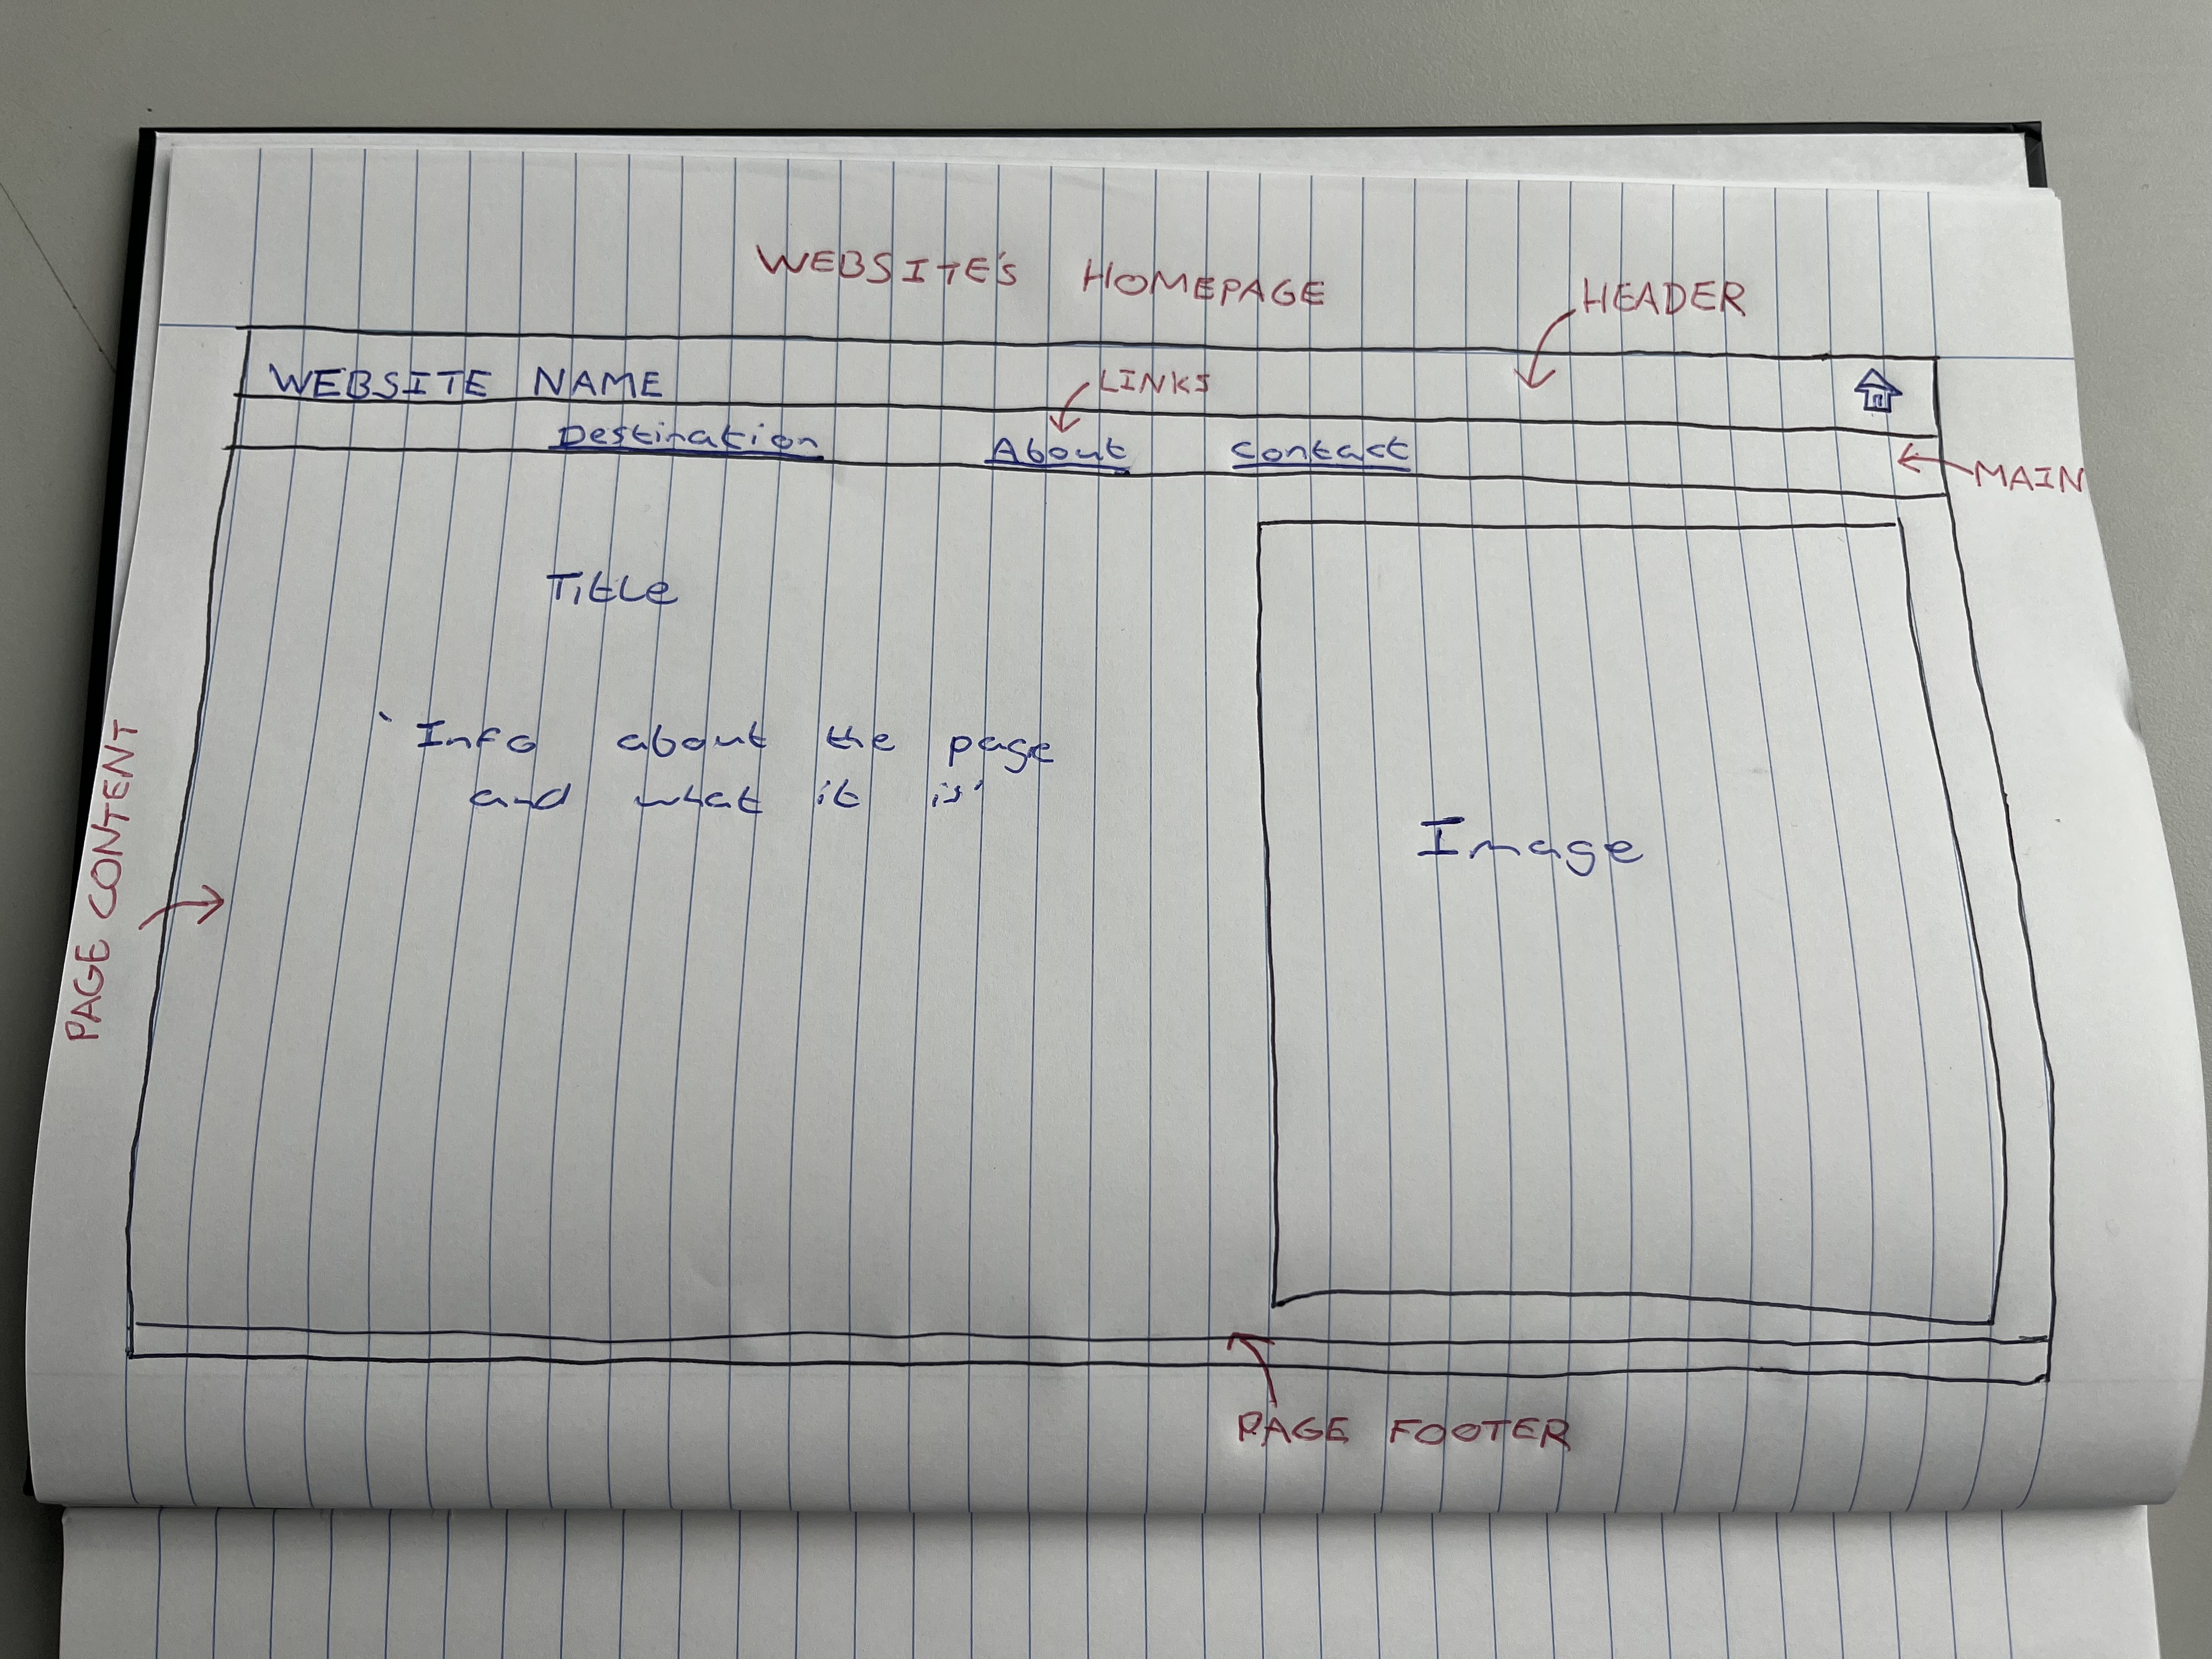 WEBSITE'S HOMEPAGE
HEADER
WEBSITE NAME
LINKS
Destination About Contact
MAIN
Title
'Info about the page
and what it is'
Image
PAGE CONTENT
PAGE FOOTER